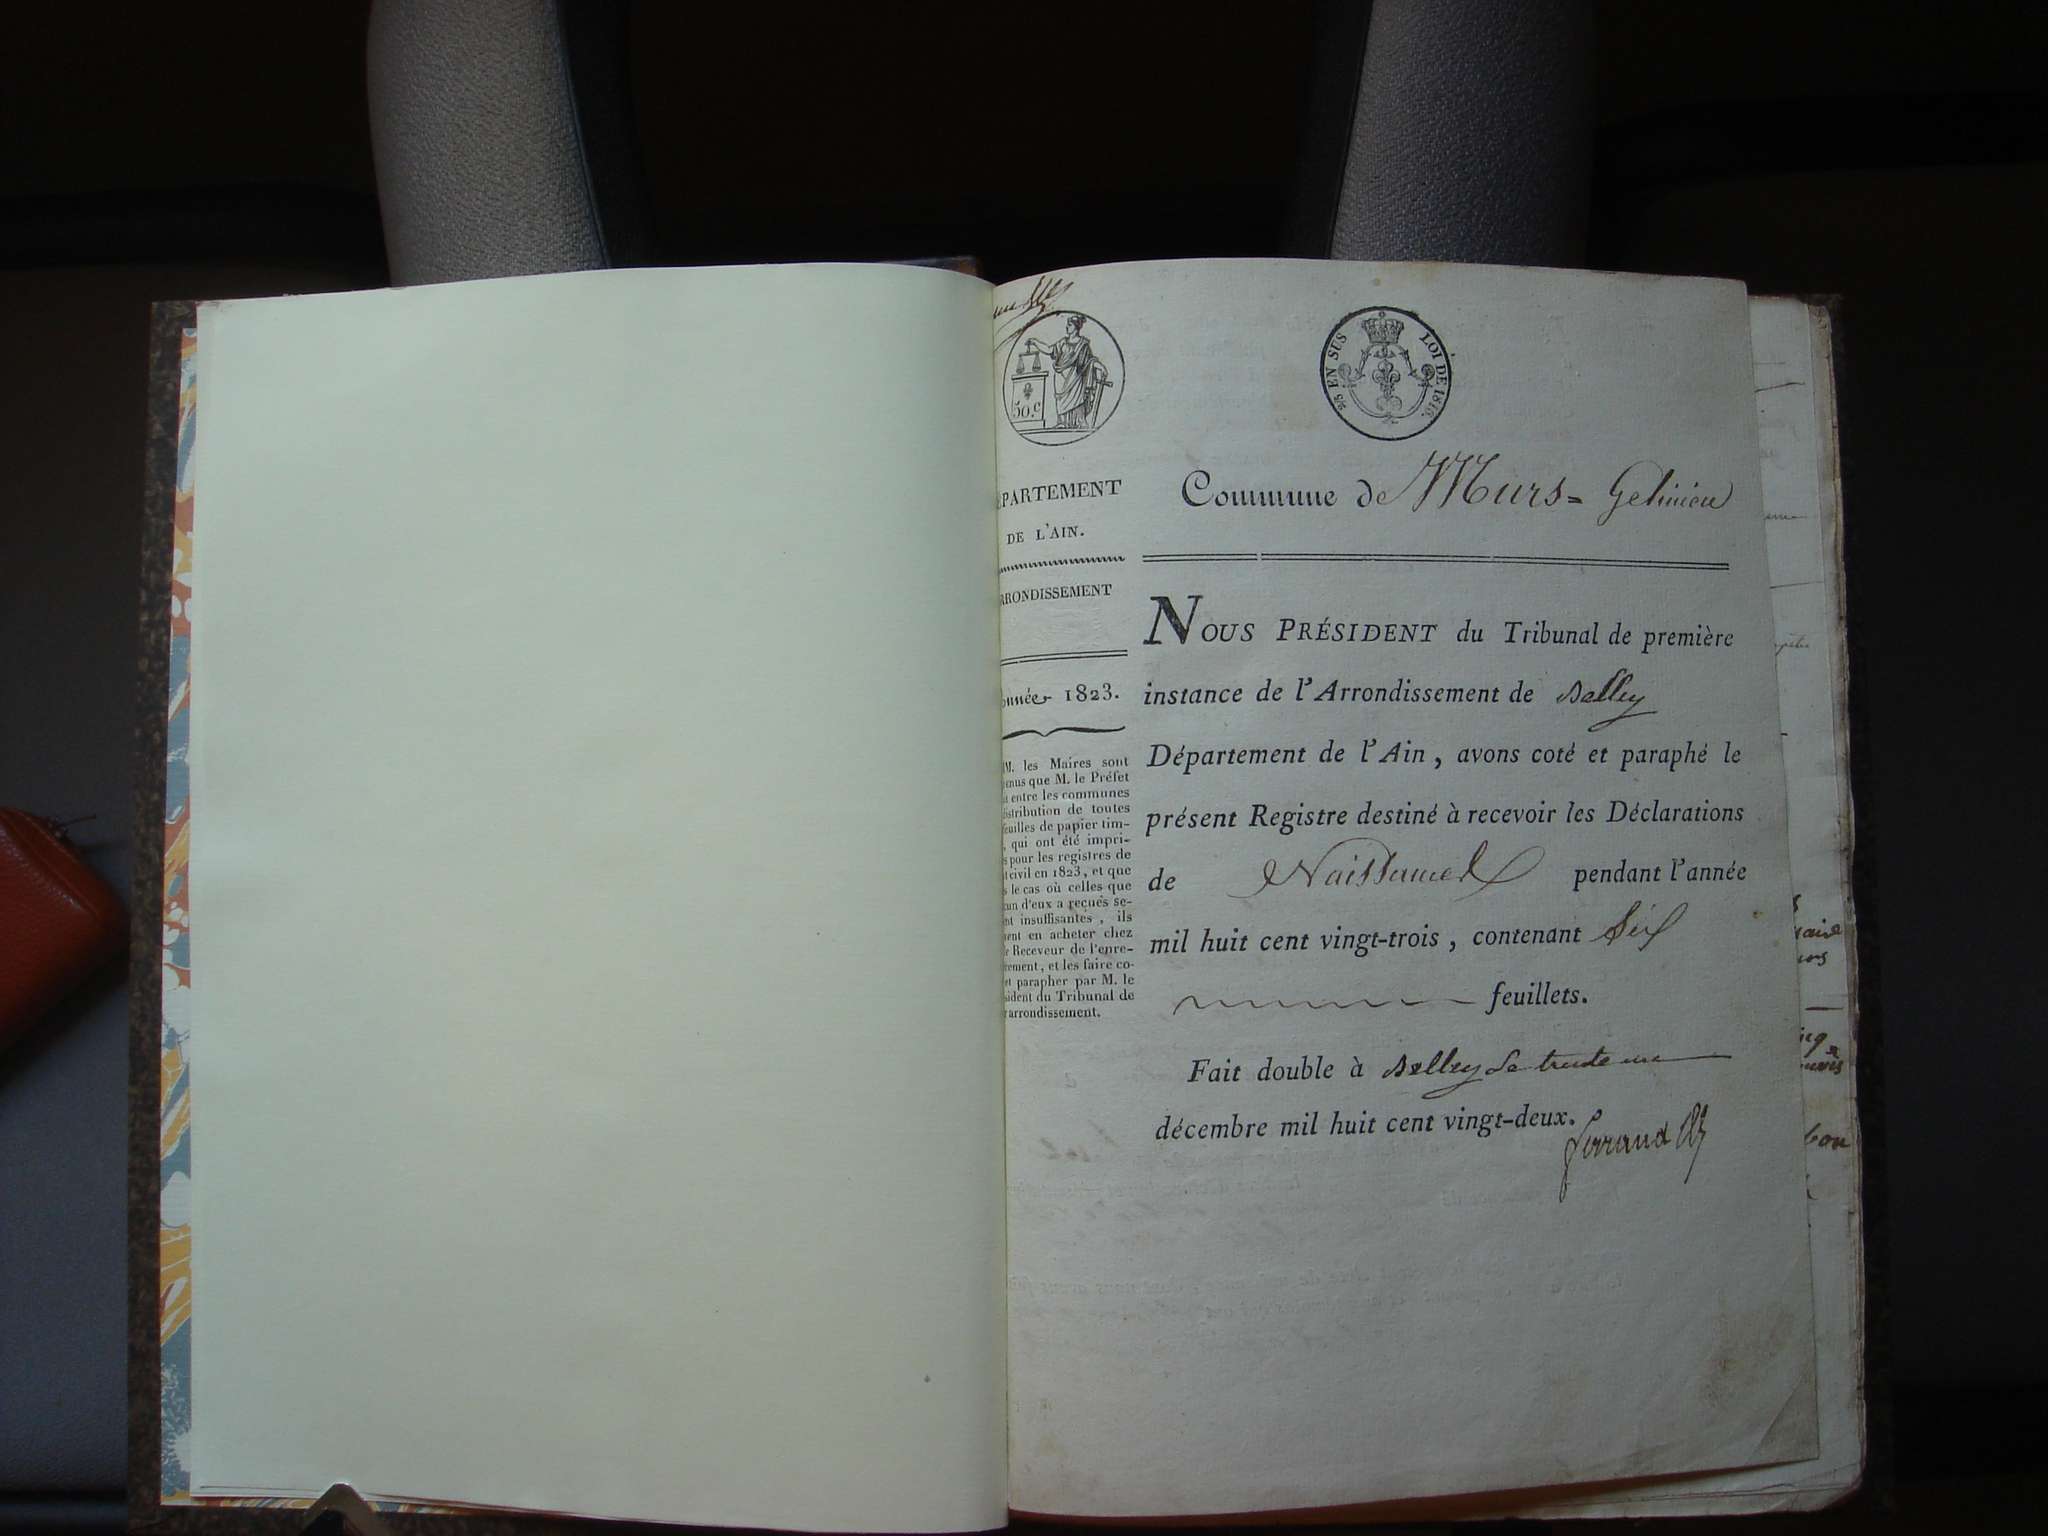 50.c
2/5 EN SUS LOI DE 1816.
PARTEMENT
DE L'AIN.
RRONDISSEMENT
nnée 1823.
M. les Maires sont
enus que M. le Préfet
entre les communes
istribution de toutes
feuilles de papier tim-
, qui ont été impri-
s pour les registres de
t civil en 1823, et que
s le cas où celles que
cun d'eux a reçues se-
nt insuffisantes, ils
vent en acheter chez
r Receveur de l'enre-
rement, et les faire co-
et parapher par M. le
sident du Tribunal de
r arrondissement.
Commune de Murs = Gelinieu
NOUS PRÉSIDENT du Tribunal de première
instance de l'Arrondissement de Belley
Département de l'Ain, avons coté et paraphé le
présent Registre destiné à recevoir les Déclarations
de Naissances pendant l'année
mil huit cent vingt-trois, contenant Six
feuillets.
Fait double à Belley le trente un
décembre mil huit cent vingt-deux.